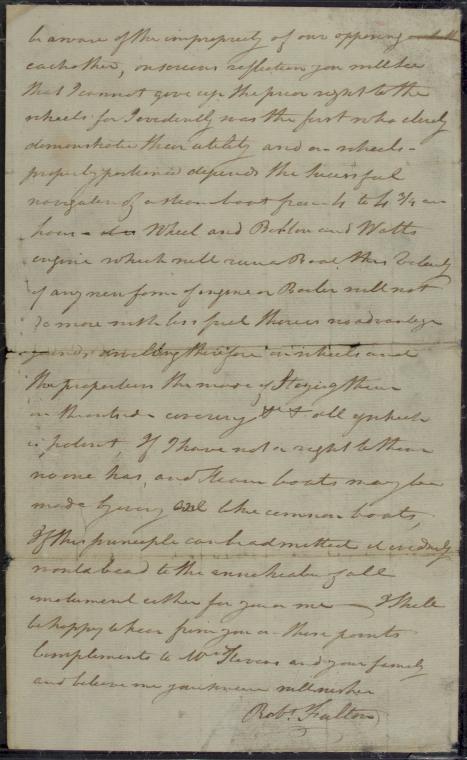 be aware of the impropriety of our opposing
each other, on serious reflection you will see
that I cannot give up the prior right to the
wheels for I evidently was the first who clearly
demonstrated their utility and on wheels
properly portioned depends the sucessful
navigation of a steam boat from 4 to 4 3/4 an
hour Wheel and Bolton and Watts
engine which will run a Boat this Velocity
if any new form of engine or Boiler will not
do more with less fuel there is no advantage
therefore in wheels and
the proportions the mode of Staying them
on the outside covering &c &c all of which
is patent, If I have not a right to them
no one has, and steam boats may be
made by every one like common boats,
If this principle can be admitted it evidently
would lead to the annihilation of all
emolument either for you or me — I shall
be happy to hear from you on these points
Complements to Mrs Stevens and your family
and believe me your sincere well wisher
Robt. Fulton